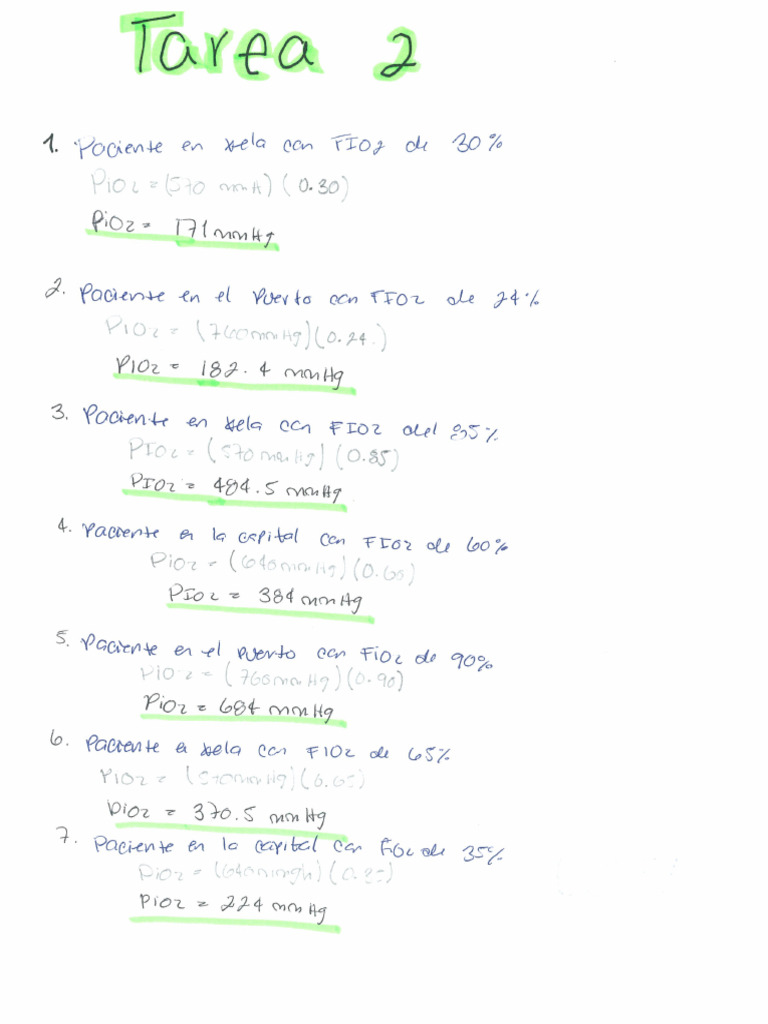 Tarea 2
1. Paciente en xela con FIO2 de 30%
PiO2 = (570 mmH) (0.30)
PiO2 = 171 mmHg
2. Paciente en el puerto con FIO2 de 24%
PiO2 = (760 mmHg) (0.24)
PIO2 = 182.4 mmHg
3. Paciente en xela con FIO2 del 85%
PIO2 = (570 mmHg) (0.85)
PIO2 = 484.5 mmHg
4. Paciente en la capital con FIO2 de 60%
PiO2 = (640 mmHg) (0.60)
PIO2 = 384 mmHg
5. Paciente en el puerto con FiO2 de 90%
PiO2 = (760 mmHg) (0.90)
PiO2 = 684 mmHg
6. Paciente en xela con FIO2 de 65%
PIO2 = (570 mmHg) (0.65)
PiO2 = 370.5 mmHg
7. Paciente en la capital con FiO2 de 35%
PiO2 = (640 mmgh) (0.35)
PiO2 = 224 mmHg